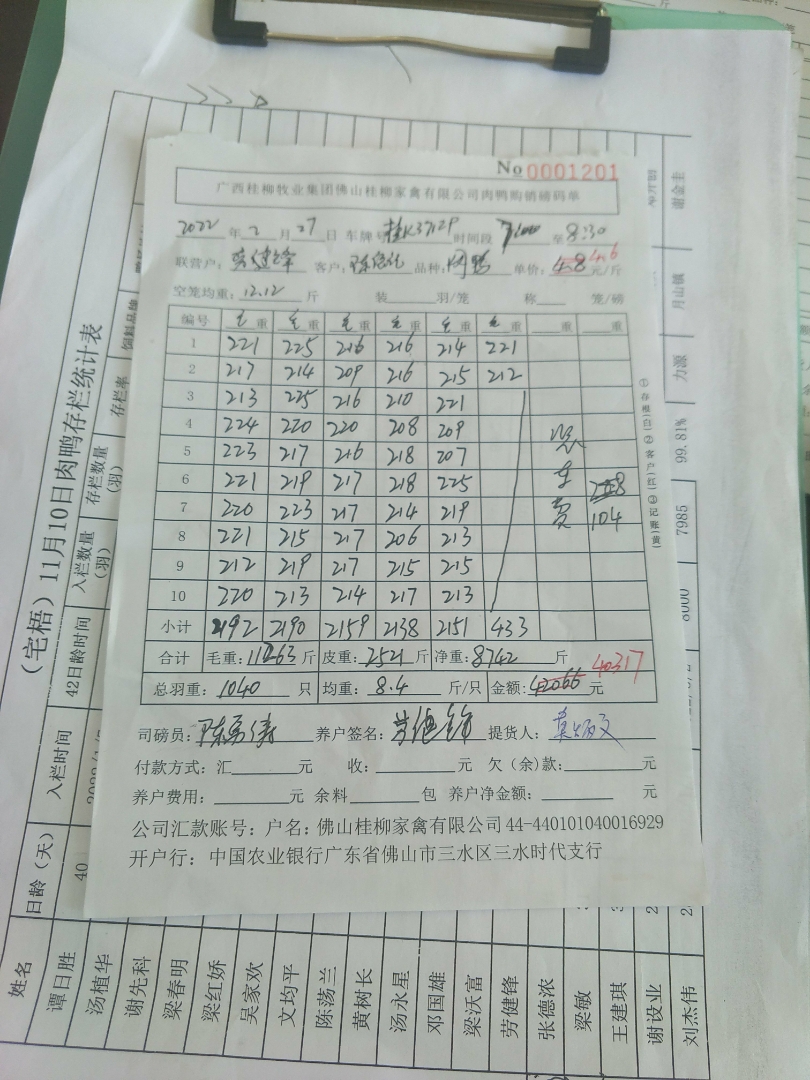 No 0001201
广西桂柳牧业集团佛山桂柳家禽有限公司肉鸭购销磅码单
2022 年 2 月 27 日 车牌号 桂K3712P 时间段 至 8:30
联营户: 劳健锋 客户: 品种: 肉鸭 单价: 4.8 4.6 元/斤
空笼均重: 12.12 斤 装 羽/笼 称 笼/磅
编号 毛重 毛重 毛重 毛重 毛重 毛重 重 重
1 221 225 216 216 214 221
2 217 214 209 216 215 212
3 213 225 216 210 221
4 224 220 220 208 209
5 223 217 216 218 207
6 221 219 217 218 225 208
7 220 223 217 214 219 104
8 221 215 217 206 213
9 212 219 217 215 215
10 220 213 214 217 213
小计 2192 2190 2159 2138 2151 433
合计 毛重: 11263 斤 皮重: 2521 斤 净重: 8742 斤
总羽重: 1040 只 均重: 8.4 斤/只 金额: 42066 元 40317
司磅员: 养户签名: 劳健锋 提货人:
付款方式: 汇 元 收: 元 欠(余)款: 元
养户费用: 元 余料 包 养户净金额: 元
公司汇款账号: 户名: 佛山桂柳家禽有限公司 44-440101040016929
开户行: 中国农业银行广东省佛山市三水区三水时代支行
(宅梧)11月10日肉鸭存栏统计表
姓名 日龄(天) 入栏时间 42日龄时间 入栏数量(羽) 存栏数量(羽) 存栏率 饲料品牌
谭日胜 40
汤植华
谢先科
梁春明
梁红娇
吴家欢
文均平
陈荡兰
黄树长
汤永星
邓国雄
梁沃富
劳健锋
张德浓
梁敏
王建琪
谢设业
刘杰伟 8000 7985 99.81% 力源 月山镇 谢金圭